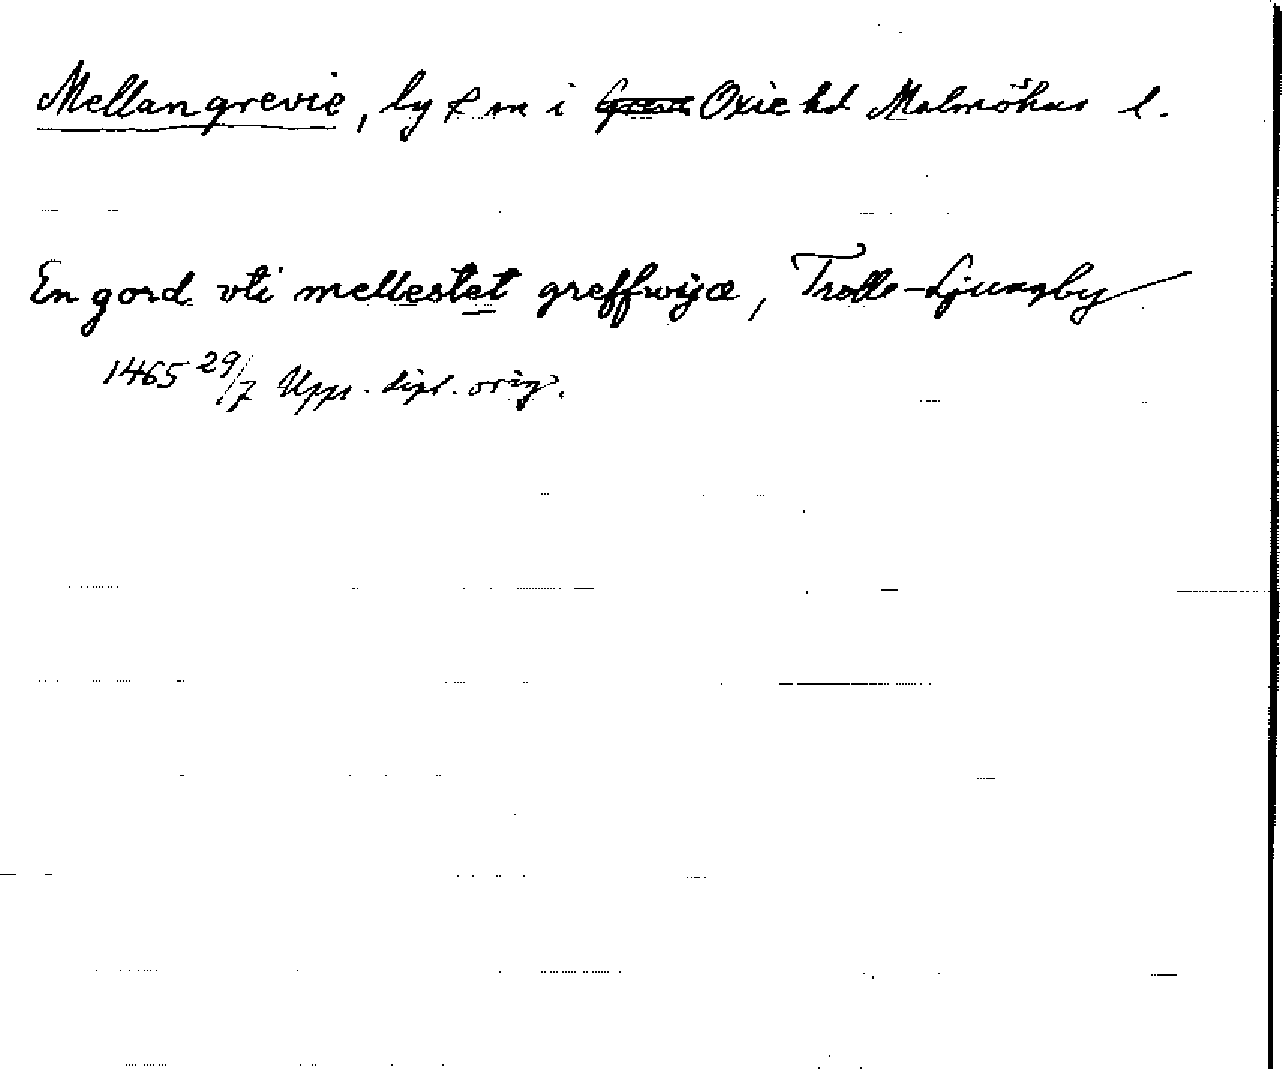 Mellangrevie, by f. m i Oxie hd Malmöhus l.
En gord vti mellestet greffwijæ, Trolle-Ljungby
1465 29/7 Upps. dipl. orig.